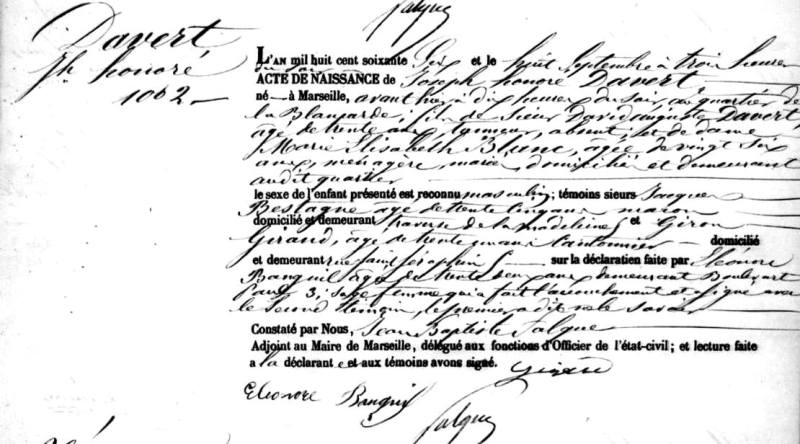 Salque
Davert
Jh honoré
1002
L'AN mil huit cent soixante Six et le huit Septembre à trois heures
du soir
ACTE DE NAISSANCE de Joseph honoré Davert,
né à Marseille, avant hier à dix heures du soir, au quartier de
la Blancarde, fils de Sieur David auguste Davert,
agé de trente ans, absent, et de dame
Marie Elisabeth Blanc, agée de vingt six
ans, menagère, mariés, domiciliés et demeurant
audit quartier
le sexe de l'enfant présenté est reconnu masculin; témoins sieurs Jacques
Bestagne agé de trente cinq ans maçon
domicilié et demeurant traverse de la madeleine, et
Giraud, agé de trente ans cantonnier domicilié
et demeurant rue sur la déclaration faite par Eléonore
agée de trente deux ans, demeurant Boulevart
3, sage femme qui a fait l'accouchement et signé avec
le second témoin, le premier a dit ne le savoir
Constaté par Nous, Jean Baptiste Salque
Adjoint au Maire de Marseille, délégué aux fonctions d'Officier de l'état-civil; et lecture faite
a la déclarant e et aux témoins avons signé.
Eléonore
Salque